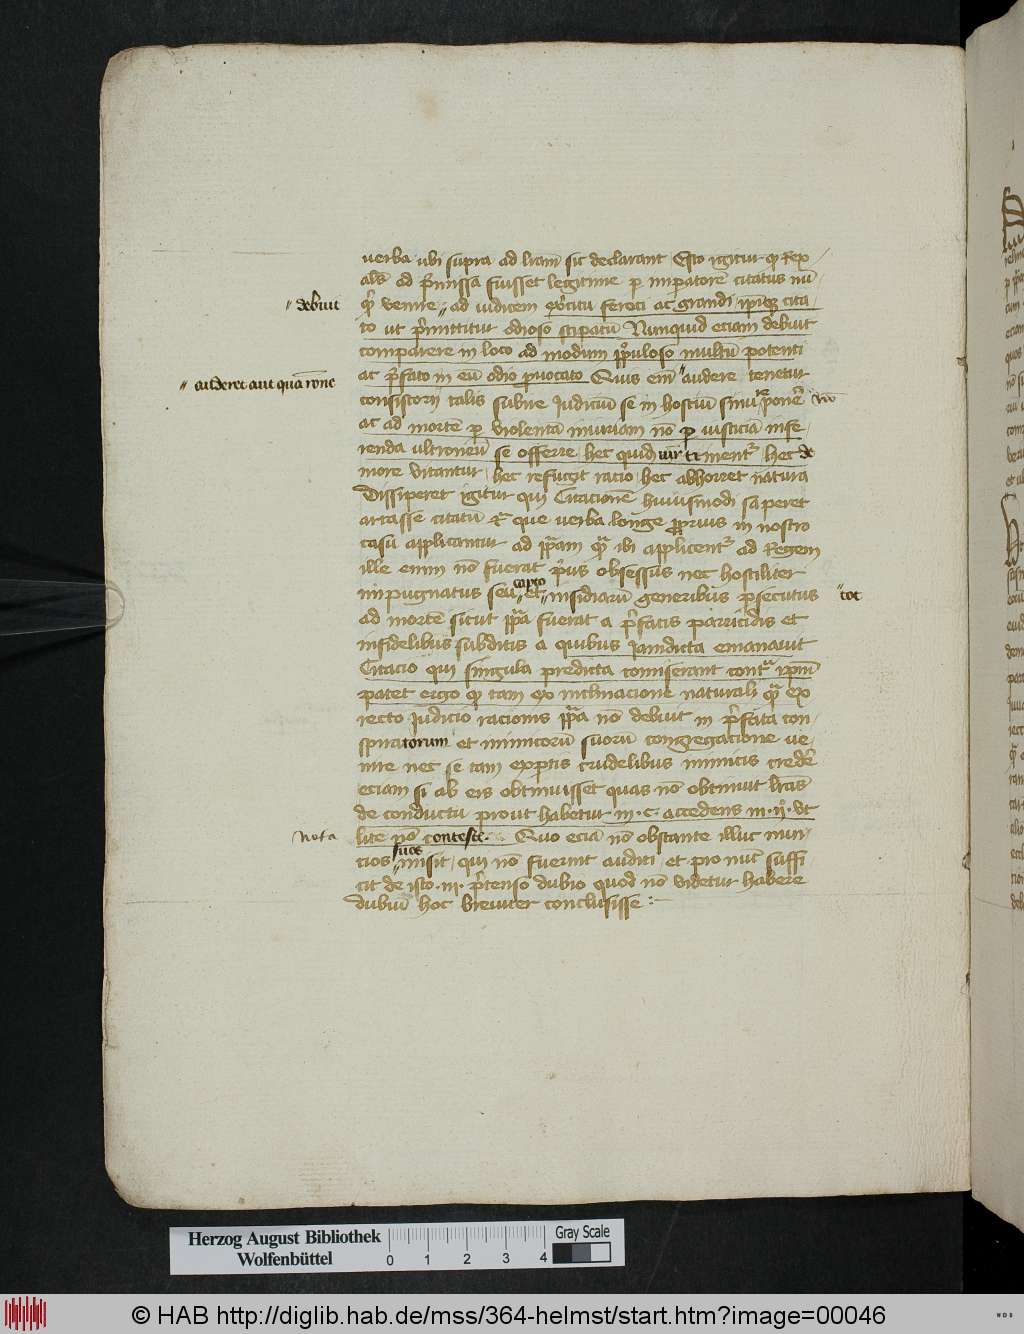 verba ubi supra ad lr̄am sic declarant Esto igitur ꝙ Rex
als̄ ad p̄missa fuisset legitime ꝑ impatorē citatus nū
venire ad iudicem exercitu feroci ac grandi ipsiꝫ cita
debuit
to ut p̄mittitur odioso stipatū Nunquid eciam debuit
comparere in loco ad modum pp̄uloso multū potenti
ac p̄fato in eū odio ꝓuocato Quis em̄ audere tenetur
auderet aut qua rōne
consistorij talis subire Judiciū se in hostiū sinu ponē
ac ad mortē ꝑ violentā iniuriam nō ꝑ iusticiā infe
renda ultroneū se offerre hec quid iur timentʳ hec de
more vitantur hec refugit racio hec abhorret natura
Dissiperet igitur qui Citacionē huiusmodi saperet
artasse citatū Et que verba longe ꝓprius in nostro
casu applicantur ad pp̄am ꝙ̄ ibi applicentʳ ad Regem
ille enim nō fuerat p̄us obsessus nec hostiliter
impugnatus seu et insidiarū generibus ꝑsecutus
capto
tot
ad mortē sicut pp̄a fuerat a p̄fatis parricidis et
infidelibus subditis a quibus Jamdicta emanauit
Citacio qui singula predicta comiserant contʳ ip̄m
patet ergo ꝙ tam ex inclinacione naturali ꝙ̄ ex
recto Judicio racionis pp̄a nō debuit in p̄fata con
spiratorum et inimicorū suorū congregacione ve
nire nec se tam exp̄tis crudelibus inimicis credē
eciam si ab eis obtinuisset quas nō obtinuit lr̄as
de conductu prout habetur in .c. accedens .ij. vt
lite nō contest̄. Quo eciā nō obstante illuc nun
Nota
cios misit qui nō fuerint auditi et pro nūc suffi
suos
cit de isto .iij. p̄tenso dubio quod nō videtur habere
dubiū hoc breuiter conclusisse :
Herzog August Bibliothek
Wolfenbüttel
0 1 2 3 4
Gray Scale
© HAB http://diglib.hab.de/mss/364-helmst/start.htm?image=00046